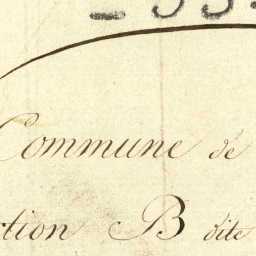 Commune de
ction B dite